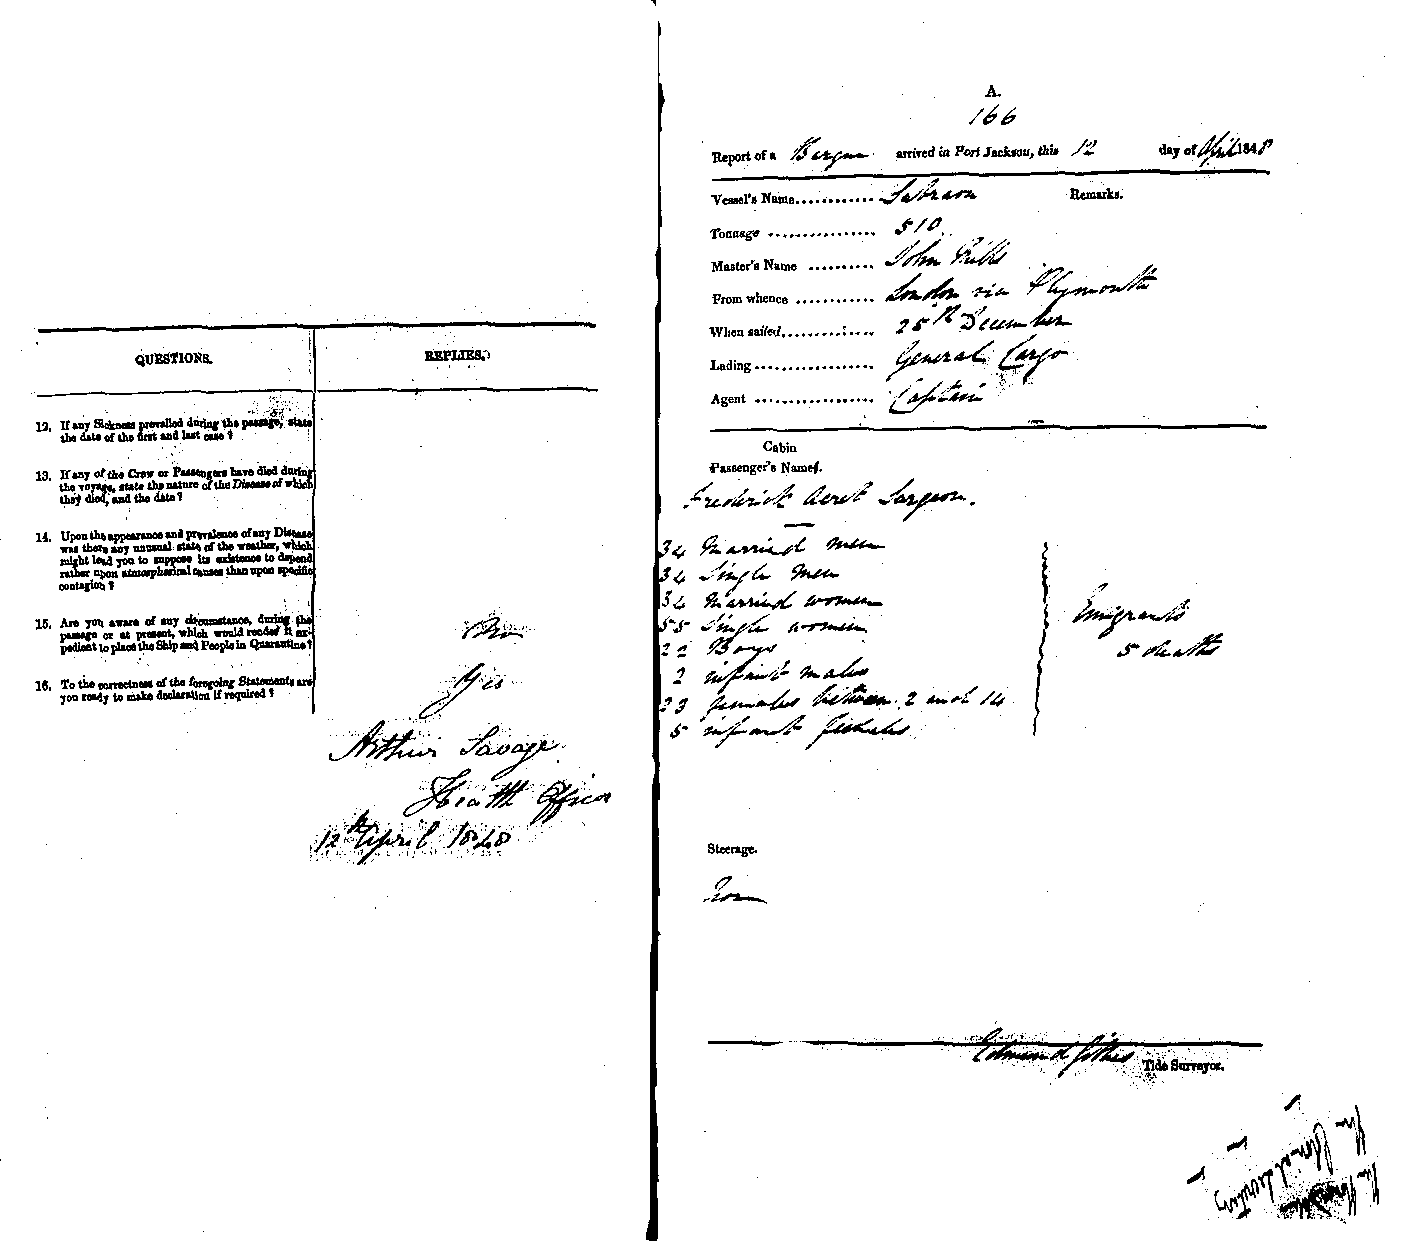 QUESTIONS.
REPLIES.
12. If any Sickness prevailed during the passage, state
the date of the first and last case?
13. If any of the Crew or Passengers have died during
the voyage, state the nature of the Disease of which
they died, and the date?
14. Upon the appearance and prevalence of any Disease
was there any unusual state of the weather, which
might lead you to suppose its existence to depend
rather upon atmospherical causes than upon specific
contagion?
15. Are you aware of any circumstance, during the
passage or at present, which would render it ex-
pedient to place the Ship and People in Quarantine?
No
16. To the correctness of the foregoing Statements are
you ready to make declaration if required?
Yes
Arthur Savage
Health Officer
12th April 1848
A.
166
Report of a Barque arrived in Port Jackson, this 12 day of April 1848
Vessel's Name Sabraon
Remarks.
Tonnage 510
Master's Name John
From whence London via Plymouth
When sailed 25th December
Lading General Cargo
Agent Captain
Cabin
Passenger's Names.
Frederick Acret Surgeon.
34 Married men
34 Single men
34 Married women
55 Single women
22 Boys
2 infant males
23 females between 2 and 14
5 infant females
Emigrants
5 deaths
Steerage.
None
Edmund Gilkes
Tide Surveyor.